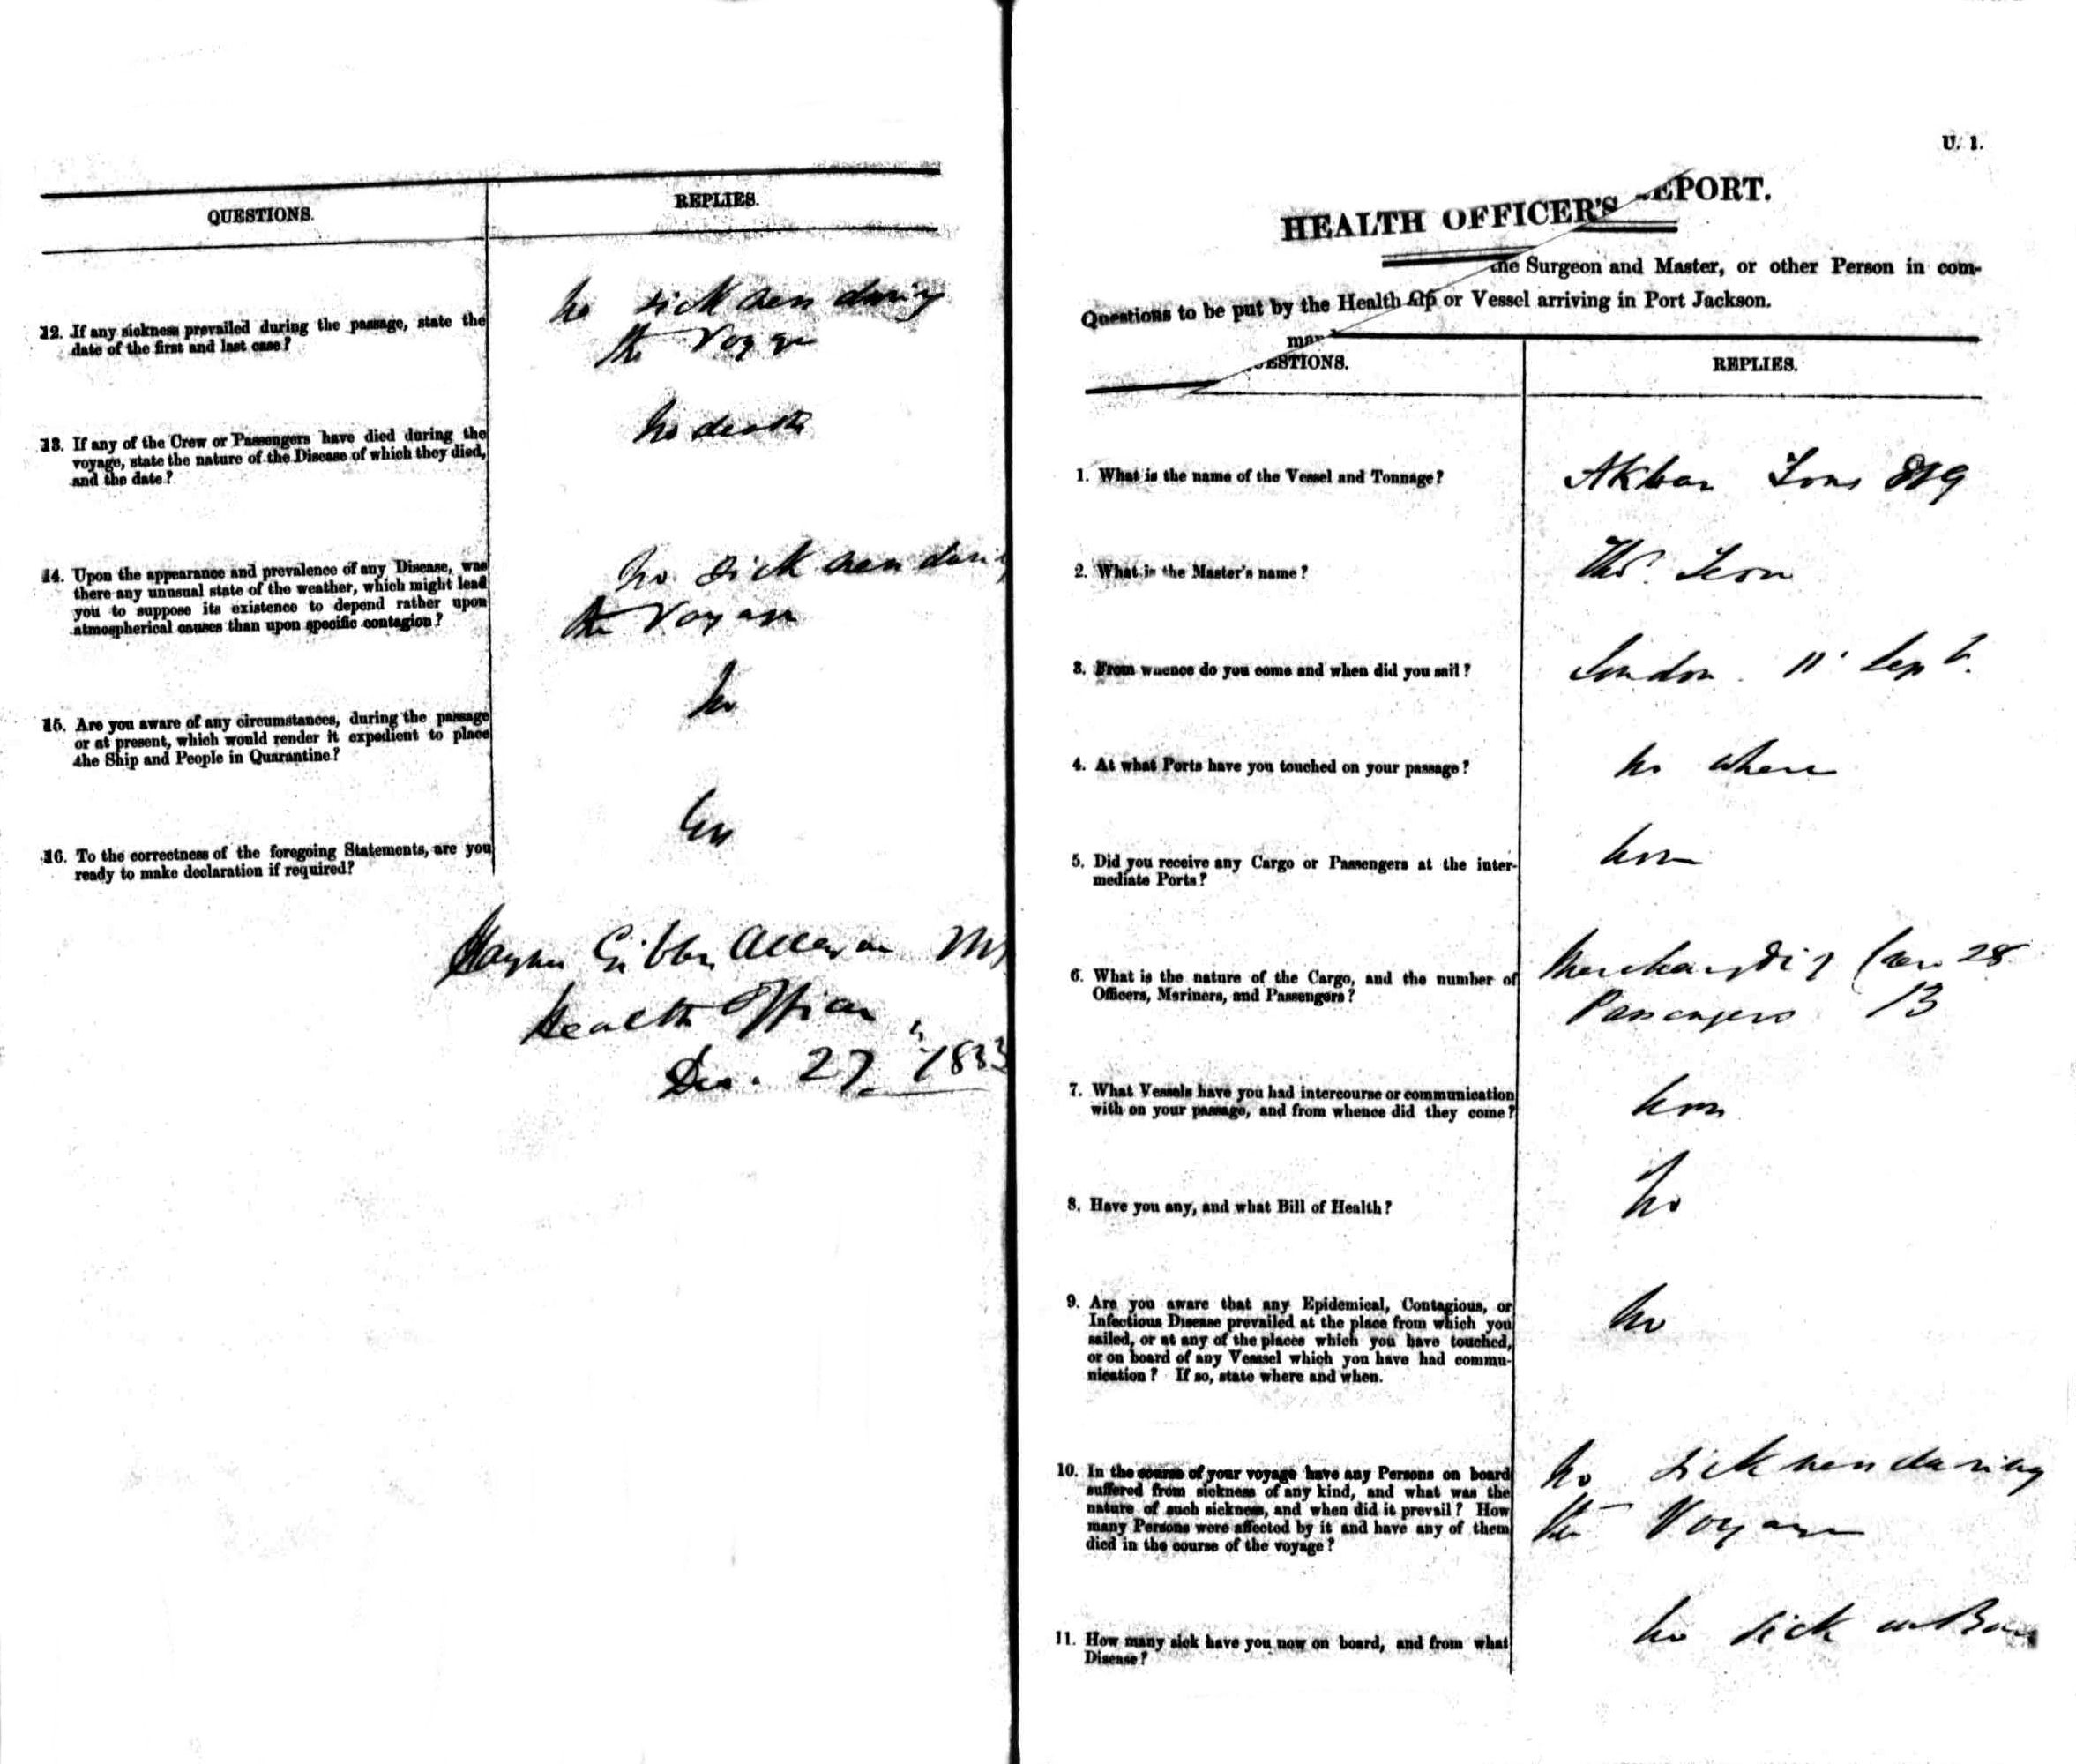 QUESTIONS.
REPLIES.
12. If any sickness prevailed during the passage, state the
date of the first and last case?
No sickness during
the Voyage
13. If any of the Crew or Passengers have died during the
voyage, state the nature of the Disease of which they died,
and the date?
No death
14. Upon the appearance and prevalence of any Disease, was
there any unusual state of the weather, which might lead
you to suppose its existence to depend rather upon
atmospherical causes than upon specific contagion?
No sickness duri
the Voyage
15. Are you aware of any circumstances, during the passage
or at present, which would render it expedient to place
the Ship and People in Quarantine?
No
16. To the correctness of the foregoing Statements, are you
ready to make declaration if required?
Yes
Haynes Gibbes Alleyne M
Health Officer
Dec. 27 188
U. 1.
HEALTH OFFICER'S EPORT.
the Surgeon and Master, or other Person in com-
Questions to be put by the Health or Vessel arriving in Port Jackson.
man
STIONS.
REPLIES.
1. What is the name of the Vessel and Tonnage?
Akbar Tons 819
2. What is the Master's name?
Ths.
3. From whence do you come and when did you sail?
London. 11 Sept.
4. At what Ports have you touched on your passage?
No where
5. Did you receive any Cargo or Passengers at the inter-
mediate Ports?
None
6. What is the nature of the Cargo, and the number of
Officers, Mariners, and Passengers?
Merchandize Crew 28
Passengers 13
7. What Vessels have you had intercourse or communication
with on your passage, and from whence did they come?
None
8. Have you any, and what Bill of Health?
No
9. Are you aware that any Epidemical, Contagious, or
Infectious Disease prevailed at the place from which you
sailed, or at any of the places which you have touched,
or on board of any Vesssel which you have had commu-
nication? If so, state where and when.
No
10. In the course of your voyage have any Persons on board
suffered from sickness of any kind, and what was the
nature of such sickness, and when did it prevail? How
many Persons were affected by it and have any of them
died in the course of the voyage?
No sickness during
the Voyage
11. How many sick have you now on board, and from what
Disease?
No sick on Board